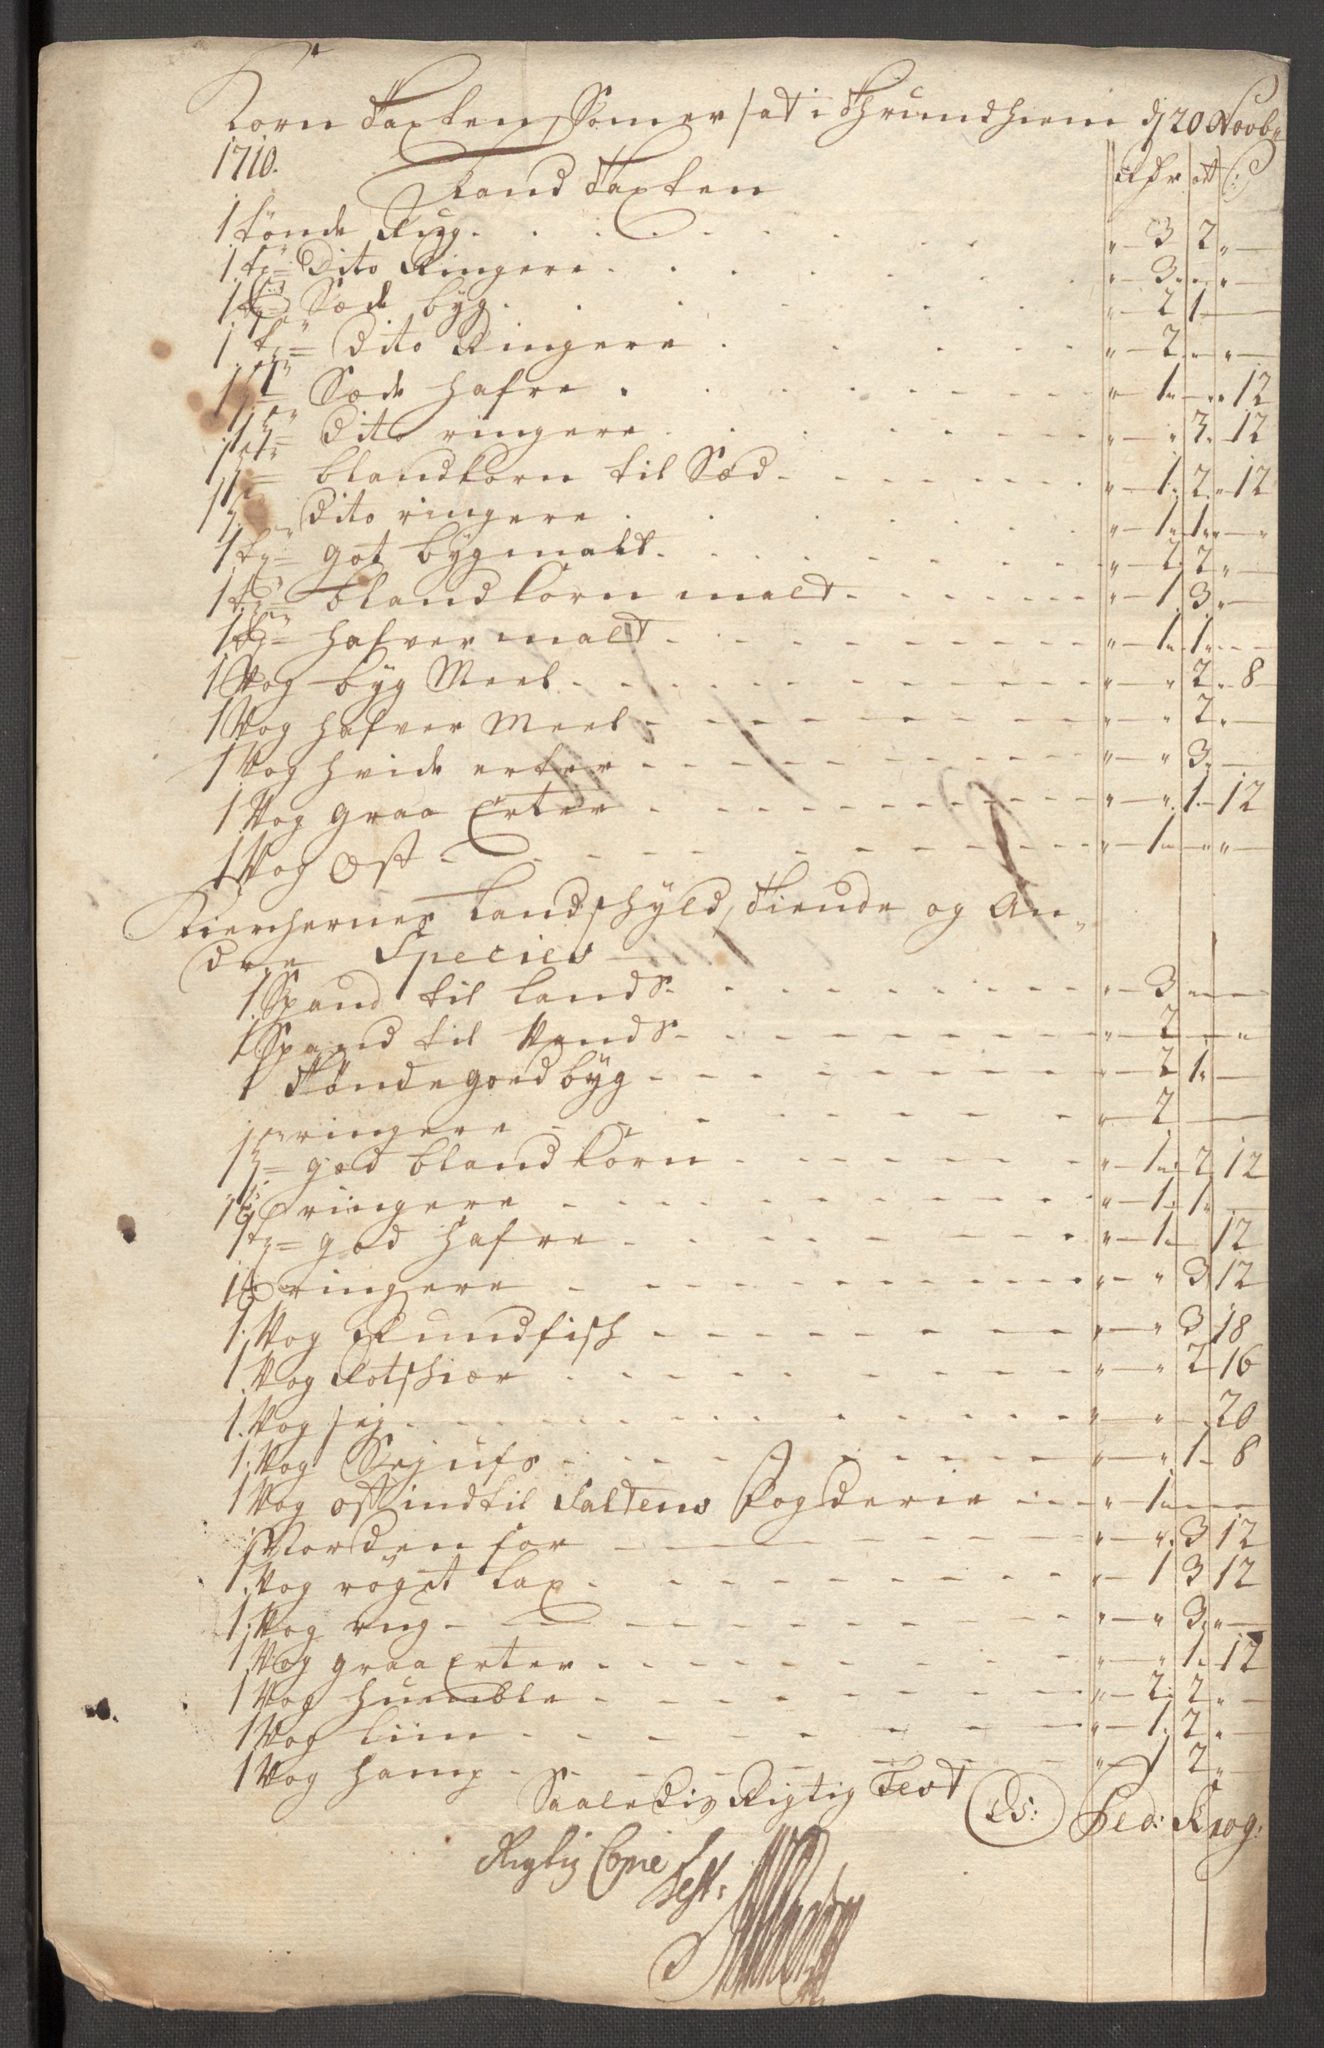 Korn Taxten, Som er sat i Thrundhiem d 20 Novb:
1710.
Land Taxten
1 tønde Rug 3 2 "
1 tø: Dito Ringere 3 " "
1 tø: Sæde byg 2 1
1 tø: Dito Ringere 2 " "
1 tø: Sæde hafre 1 " 12
1 tø: Dito ringere " 3 12
1 tø: blandkorn til Sæd 1 2 12
1 tø: Dito ringere 1 1 "
1 tø: got bygmalt 2 2 "
1 tø: blandkorn malt 1 3 "
1 tø: hafver malt 1 1
1 Vog byg Meel " 2 8
1 Vog hafver Meel " 2 "
1 Vog hvide erter " 3
1 Vog graa Erter " 1 12
1 Vog Ost 1 " "
Kierchernes Landschyld, Tiende og An-
dre Species
1 Spand til Lands 3
1 Spand til Vands 2 "
1 Tønde goed byg 2 1
1 tø: ringere 2
1 tø: god blandkorn 1 2 12
1 tø: ringere 1 1
1 tø: god hafre 1 12
1 tø: ringere " 3 12
1 Vog Rundfisch " 3 18
1 Vog Rotschier " 2 16
1 Vog sej " 20
1 Vog Sejufs " 1 8
1 Vog ost indtil Saltens Fogderie 1
Norden for " 3 12
1 Vog røget Lax 1 3 12
1 Vog rug " 3 "
1 Vog graa Erter " 1 12
1 Vog humble 2 2 "
1 Vog Liin 1 2 "
1 Vog hamp 1 2 "
Saaledis Rigtig Test LS: Ped: Krog:
Rigtig Copie
Test: